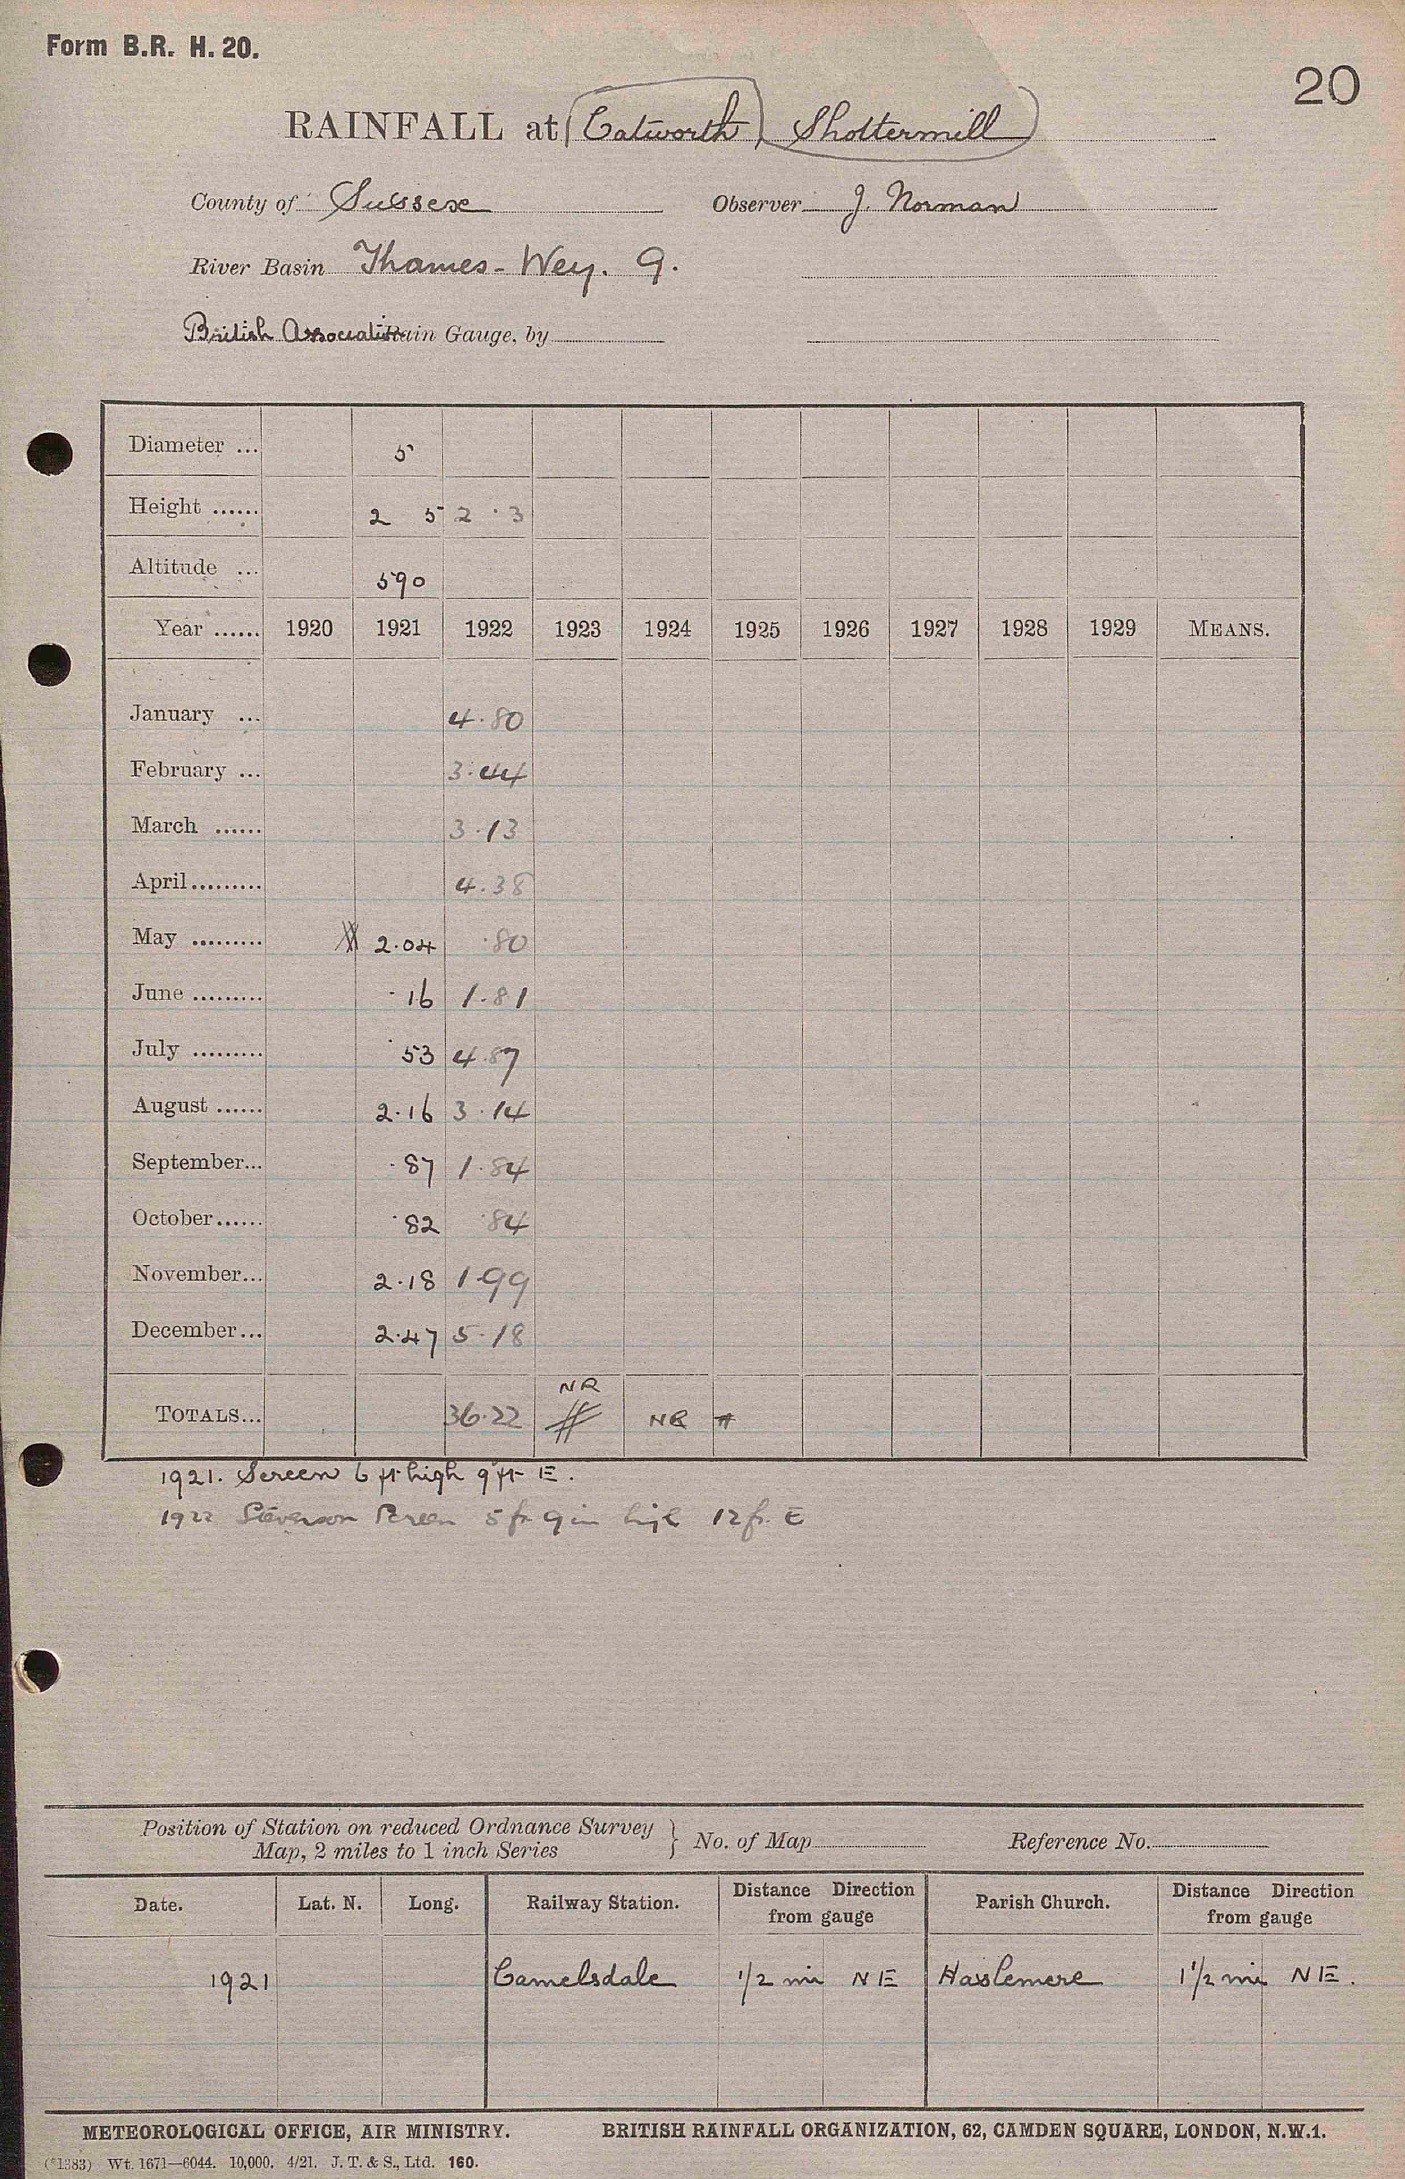 Form B.R. H. 20.
20
RAINFALL at (Catworth) Shottermill)
County of Sussex Observer J. Norman
River Basin Thames - Wey. 9.
British Association Rain Gauge, by
Diameter ... 5
Height ...... 2 5 2 · 3
Altitude ... 590
Year ...... 1920 1921 1922 1923 1924 1925 1926 1927 1928 1929 MEANS.
January ... 4.80
February ... 3.44
March ...... 3.13
April......... 4.38
May ......... 2.04 .80
June ......... .16 1.81
July ......... .53 4.87
August ...... 2.16 3.14
September... .87 1.84
October...... .82 .84
November... 2.18 1.99
December... 2.47 5.18
NR
TOTALS... 36.22 # NR #
1921. Screen 6 ft high 9 ft E.
1922 Stevenson Screen 5 ft 9 in high 12 ft. E
Position of Station on reduced Ordnance Survey
Map, 2 miles to 1 inch Series } No. of Map Reference No.
Date. Lat. N. Long. Railway Station. Distance Direction from gauge Parish Church. Distance Direction from gauge
1921 Camelsdale 1/2 mi NE Haslemere 1 1/2 mi NE.
METEOROLOGICAL OFFICE, AIR MINISTRY. BRITISH RAINFALL ORGANIZATION, 62, CAMDEN SQUARE, LONDON, N.W.1.
(*1383) Wt. 1671—6044. 10,000. 4/21. J. T. & S., Ltd. 160.